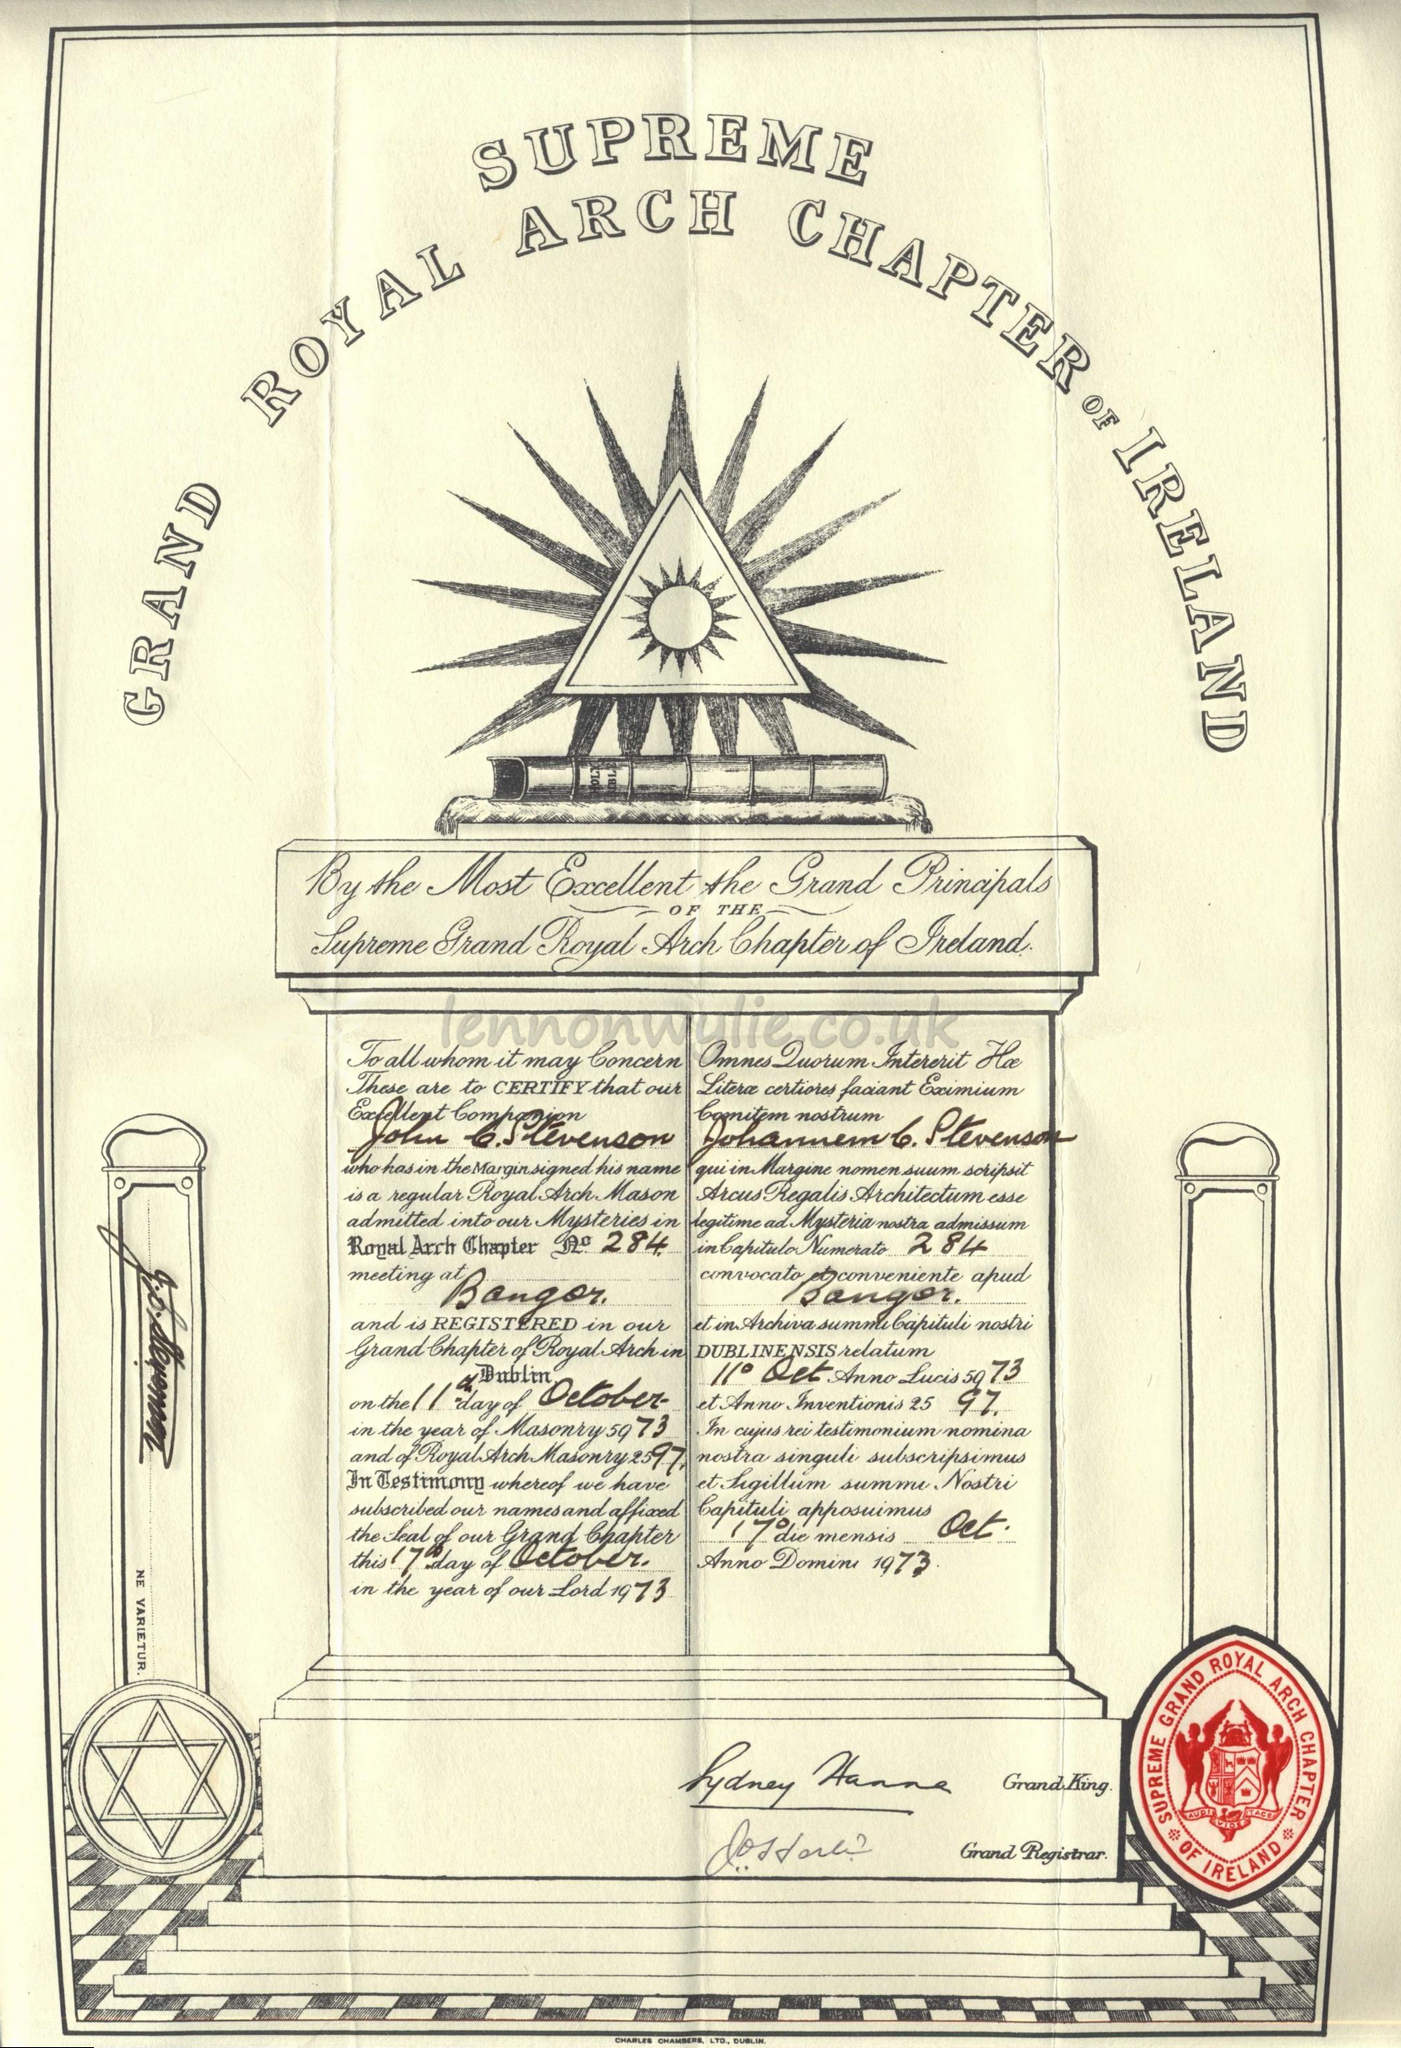 SUPREME
GRAND ROYAL ARCH CHAPTER OF IRELAND
HOLY BIBLE
By the Most Excellent the Grand Principals
OF THE
Supreme Grand Royal Arch Chapter of Ireland.
lennonwylie.co.uk
To all whom it may Concern
These are to CERTIFY that our
Excellent Companion
John C. Stevenson
who has in the Margin signed his name
is a regular Royal Arch Mason
admitted into our Mysteries in
Royal Arch Chapter No 284
meeting at
Bangor.
and is REGISTERED in our
Grand Chapter of Royal Arch in
Dublin
on the 11th day of October
in the year of Masonry 5973
and of Royal Arch Masonry 2597.
In Testimony whereof we have
subscribed our names and affixed
the Seal of our Grand Chapter
this 17th day of October.
in the year of our Lord 1973
Omnes Quorum Intererit Hæ
Literæ certiores faciant Eximium
Comitem nostrum
Johannem C. Stevenson
qui in Margine nomen suum scripsit
Arcus Regalis Architectum esse
legitime ad Mysteria nostra admissum
in Capitulo Numerato 284
convocato et conveniente apud
Bangor.
et in Archiva summi Capituli nostri
DUBLINENSIS relatum
11o Oct Anno Lucis 5973
et Anno Inventionis 25 97.
In cujus rei testimonium nomina
nostra singuli subscripsimus
et Sigillum summi Nostri
Capituli apposuimus
17o die mensis Oct.
Anno Domini 1973.
J. C. Stevenson
NE VARIETUR.
Sydney Hanna Grand King.
Grand Registrar.
SUPREME GRAND ROYAL ARCH CHAPTER
OF IRELAND
AUDI VIDE TACE
CHARLES CHAMBERS, LTD., DUBLIN.